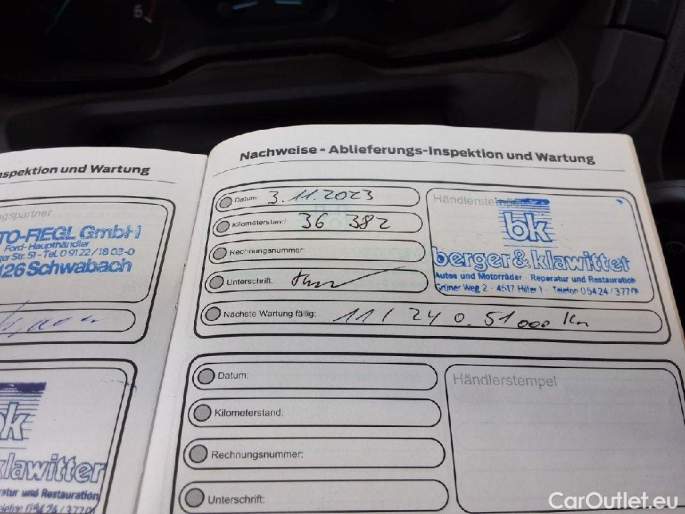 5
nspektion und Wartung
ngspartner
TO-RIEGL GmbH
Ford-Haupthändler
26 Schwabach
k
lawitter
ratur und Restauration
Nachweise - Ablieferungs-Inspektion und Wartung
Datum: 3.11.2023
Kilometerstand: 36 382
Rechnungsnummer:
Unterschrift:
Nächste Wartung fällig: 11/24 o. 51000 Km
Händlerstempel
bk
berger & klawitter
Autos und Motorräder - Reparatur und Restauration
Datum:
Kilometerstand:
Rechnungsnummer:
Unterschrift:
Händlerstempel
CarOutlet.eu